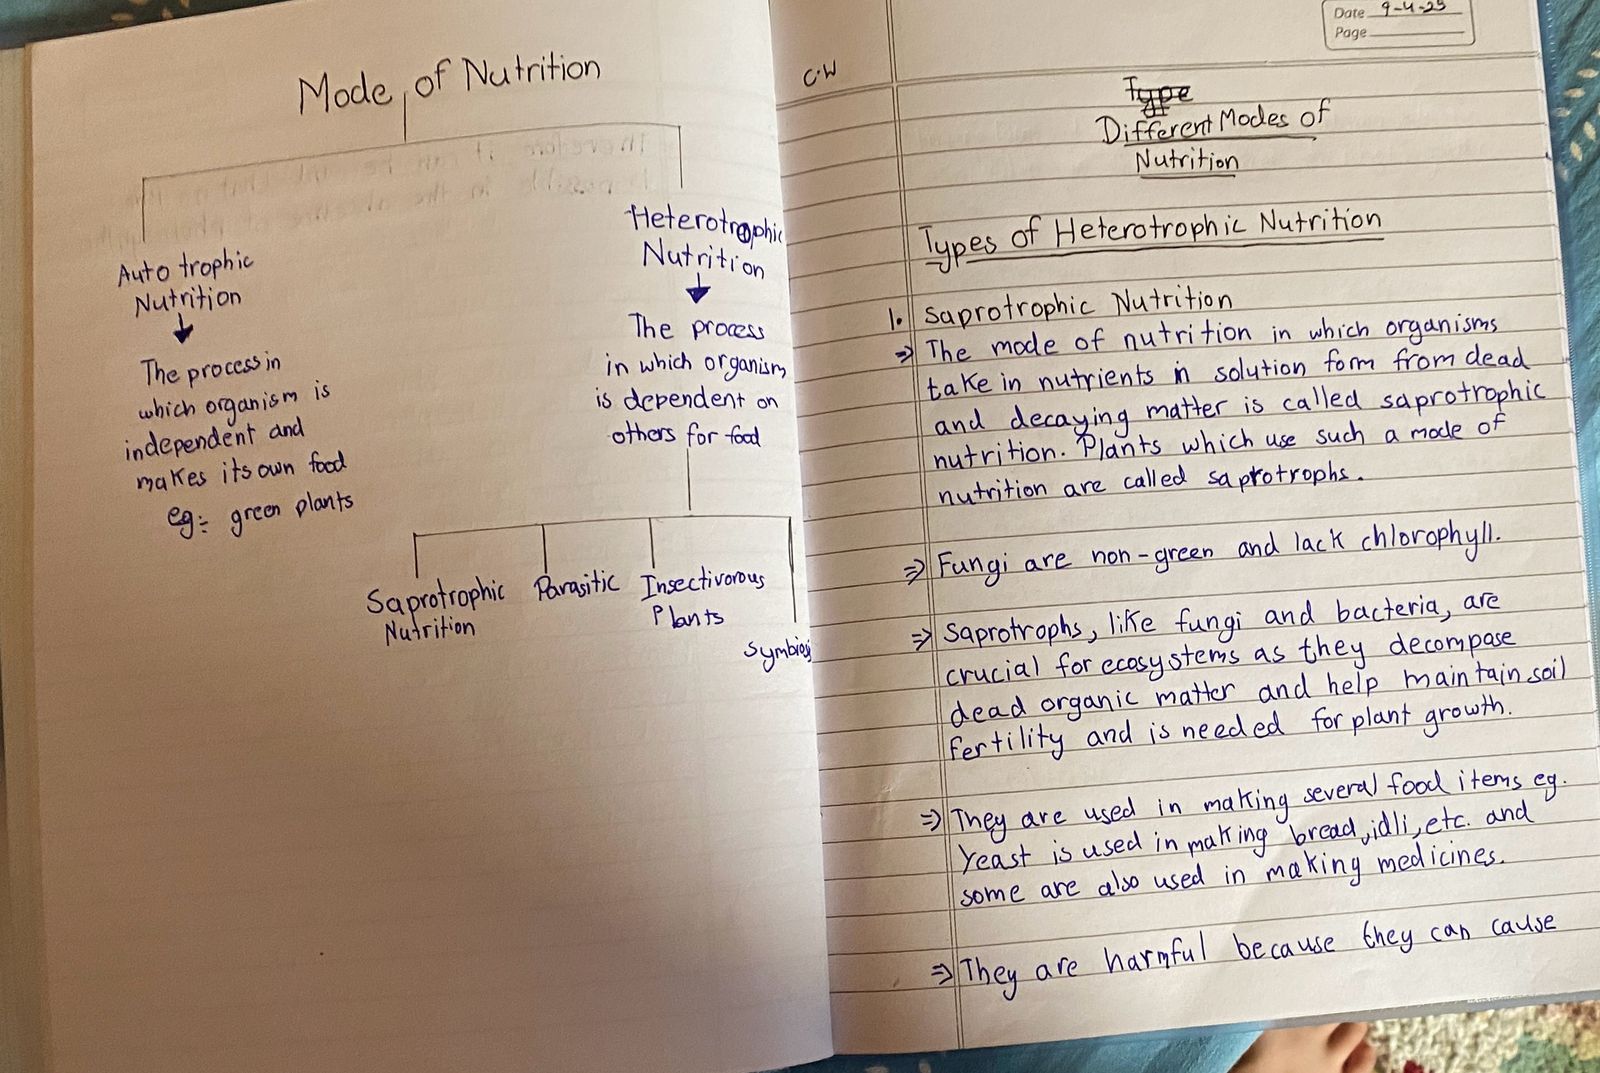 Mode of Nutrition
Auto trophic
Nutrition
The process in
which organism is
independent and
makes its own food
eg:- green plants
Heterotrophic
Nutrition
The process
in which organism
is dependent on
others for food
Saprotrophic
Nutrition
Parasitic
Insectivorous
Plants
Date 9-4-25
Page
C.W
Type
Different Modes of
Nutrition
Types of Heterotrophic Nutrition
1. Saprotrophic Nutrition
⇒ The mode of nutrition in which organisms
take in nutrients in solution form from dead
and decaying matter is called saprotrophic
nutrition. Plants which use such a mode of
nutrition are called saprotrophs.
⇒ Fungi are non-green and lack chlorophyll.
⇒ Saprotrophs, like fungi and bacteria, are
crucial for ecosystems as they decompase
dead organic matter and help maintain soil
fertility and is needed for plant growth.
⇒ They are used in making several food items eg.
Yeast is used in making bread, idli, etc. and
some are also used in making medicines.
⇒ They are harmful because they can cause